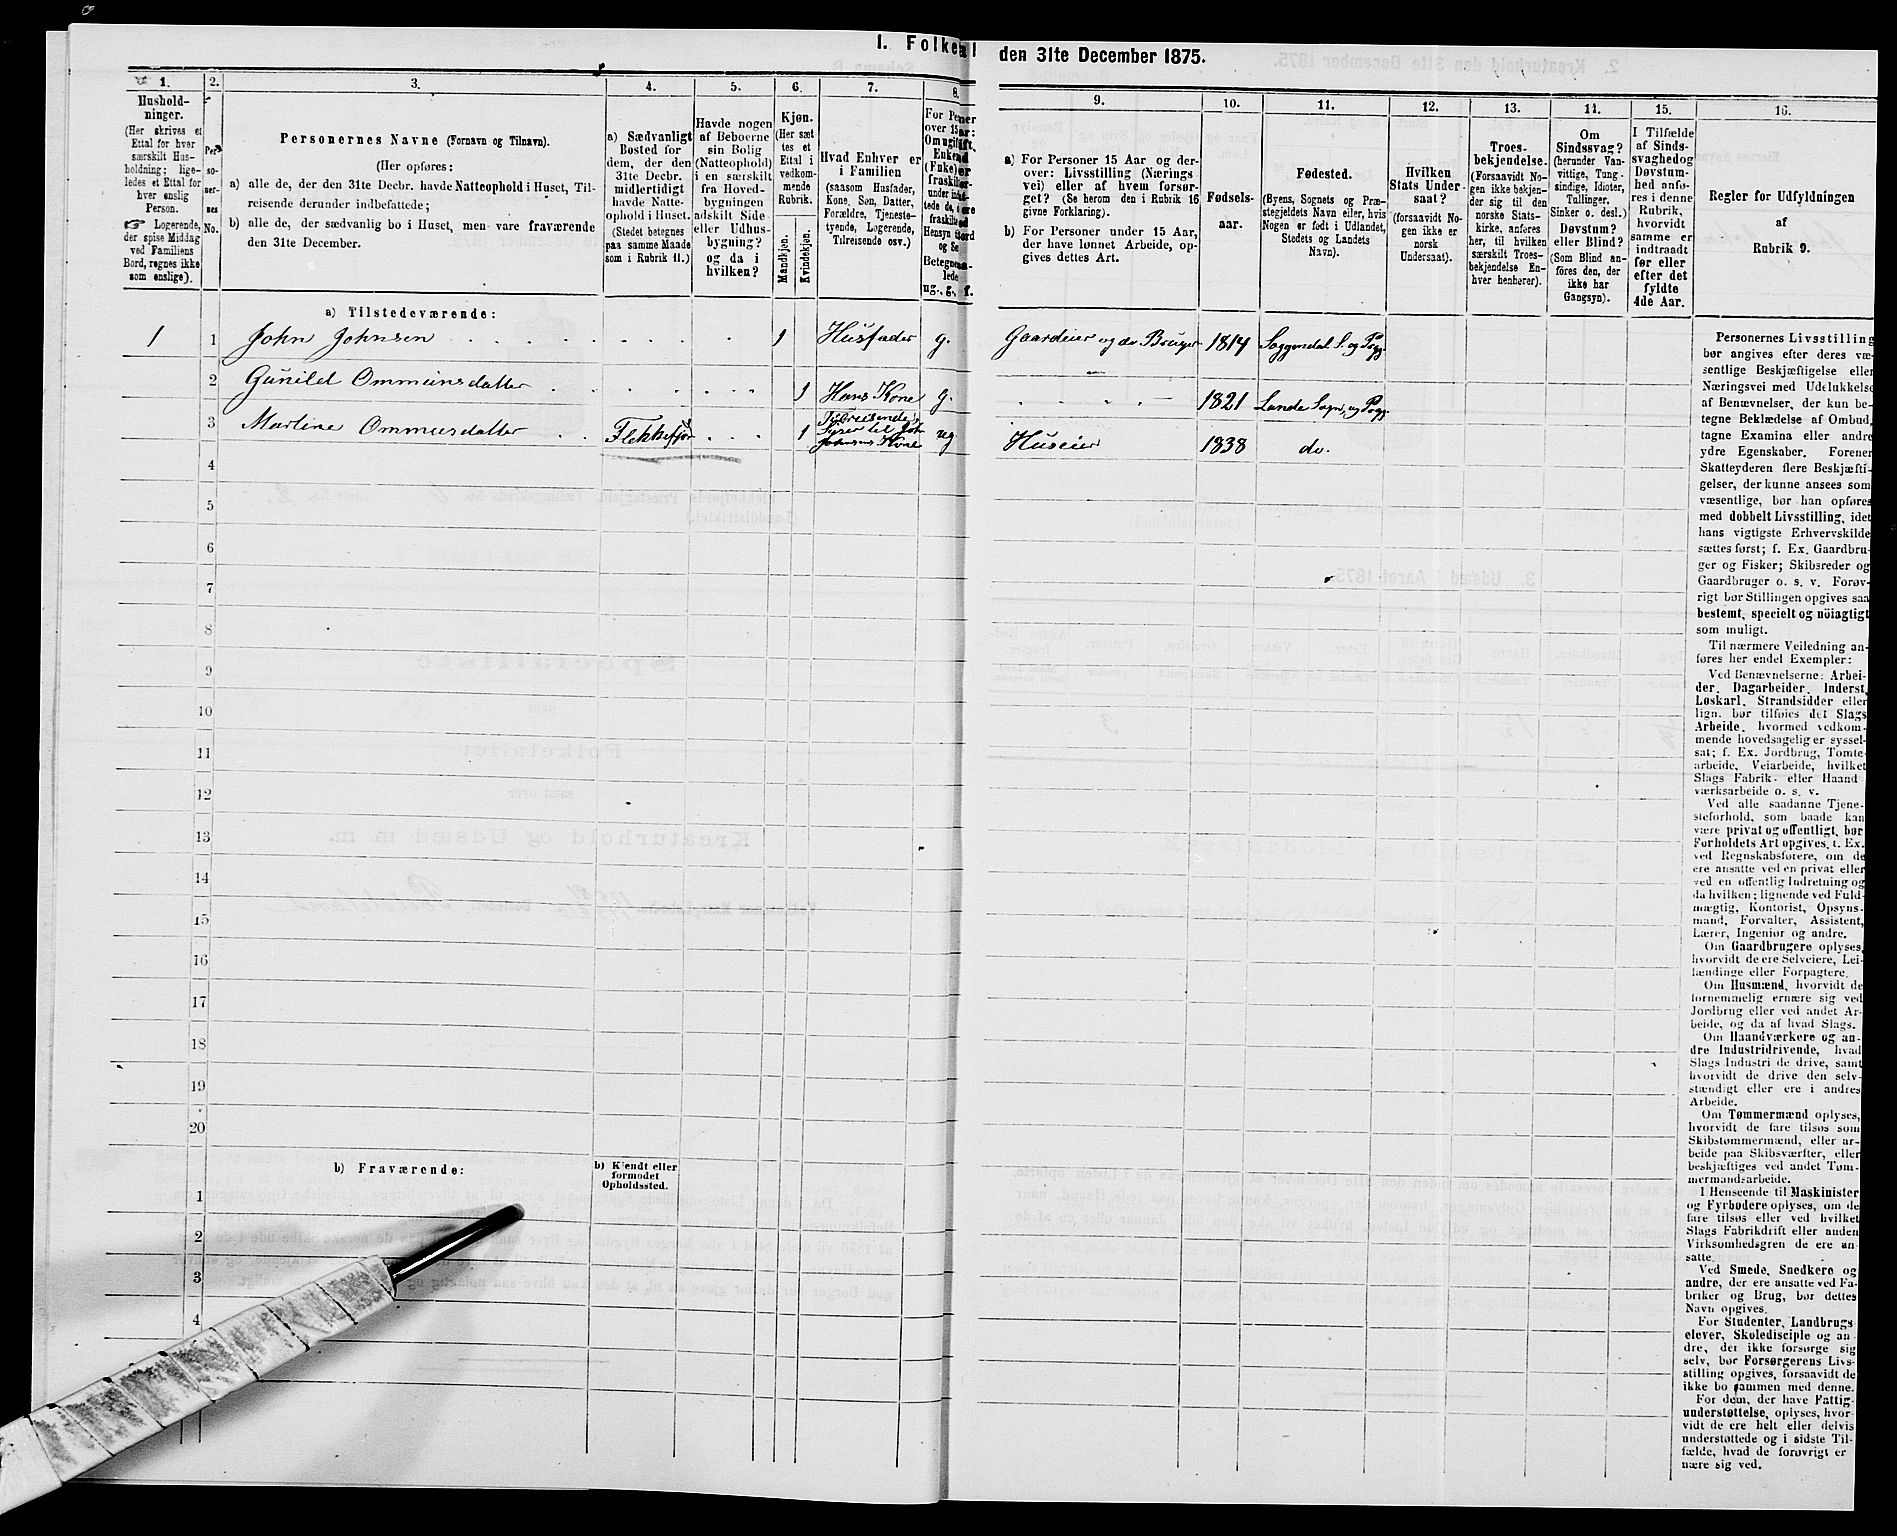 I. Folketal den 31te December 1875.
1.
Hushold-
ninger.
(Her skrives et
Ettal for hver
særskilt Hus-
holdning; lige-
ledes et Ettal for
hver enslig
Person.
☞ Logerende,
der spise Middag
ved Familiens
Bord, regnes ikke
som enslige).
2.
Per
so-
ner-
nes
No.
3.
Personernes Navne (Fornavn og Tilnavn).
(Her opføres:
a) alle de, der den 31te Decbr. havde Natteophold i Huset, Til-
reisende derunder indbefattede;
b) alle de, der sædvanlig bo i Huset, men vare fraværende
den 31te December.
4.
a) Sædvanligt
Bosted for
dem, der den
31te Decbr.
midlertidigt
havde Natte-
ophold i Huset.
(Stedet betegnes
paa samme Maade
som i Rubrik 11.)
5.
Havde nogen
af Beboerne
sin Bolig
(Natteophold)
i en særskilt
fra Hoved-
bygningen
adskilt Side-
eller Udhus-
bygning?
og da i
hvilken?
6.
Kjøn.
(Her sæt
tes et
Ettal i
vedkom-
mende
Rubrik.
Mandkjøn.
Kvindekjøn.
7.
Hvad Enhver er
i Familien
(saasom Husfader,
Kone, Søn, Datter,
Forældre, Tjeneste-
tyende, Logerende,
Tilreisende osv.)
8.
ug., g.,
9.
a) For Personer 15 Aar og der-
over: Livsstilling (Nærings
vei) eller af hvem forsør-
get? (Se herom den i Rubrik 16
givne Forklaring).
b) For Personer under 15 Aar,
der have lønnet Arbeide, op-
gives dettes Art.
10.
Fødsels-
aar.
11.
Fødested.
(Byens, Sognets og Præ-
stegjeldets Navn eller, hvis
Nogen er født i Udlandet,
Stedets og Landets
Navn).
12.
Hvilken
Stats Under-
saat?
(forsaavidt No-
gen ikke er
norsk
Undersaat).
13.
Troes-
bekjendelse.
(Forsaavidt No-
gen ikke bekjen-
der sig til den
norske Stats-
kirke, anføres
her, til hvilken
særskilt Troes-
bekjendelse En-
hver henhører).
14.
Om
Sindssvag?
(herunder Van-
vittige, Tung-
sindige, Idioter,
Tullinger,
Sinker o. desl.)
Døvstum?
eller Blind?
(Som Blind an-
føres den, der
ikke har
Gangsyn).
15.
I Tilfælde
af Sinds-
svaghed og
Døvstum-
hed anfø-
res i denne
Rubrik,
hvorvidt
samme er
indtraadt
før eller
efter det
fyldte
4de Aar.
16.
Regler for Udfyldningen
af
Rubrik 9.
a) Tilstedeværende:
1 1 John Johnsen 1 Husfader g. Gaardeier og do Bruger 1814 Soggendal S. og Pgj.
2 Gunild Ommunsdatter 1 Hans Kone g. 1821 Lunde Sogn og Pgj.
3 Martine Ommunsdatter Flekkefjord 1 Tilreisende, Søster til John Johnsens Kone ug Huseier 1838 do.
4
5
6
7
8
9
10
11
12
13
14
15
16
17
18
19
20
b) Fraværende:
b) Kjendt eller
formodet
Opholdssted.
1
2
3
4
Personernes Livsstilling
bør angives efter deres væ-
sentlige Beskjæftigelse eller
Næringsvei med Udelukkelse
af Benævnelser, der kun be-
tegne Beklædelse af Ombud,
tagne Examina eller andre
ydre Egenskaber. Forener
Skatteyderen flere Beskjæfti-
gelser, der kunne ansees som
væsentlige, bør han opføres
med dobbelt Livsstilling, idet
hans vigtigste Erhvervskilde
sættes først; f. Ex. Gaardbru-
ger og Fisker; Skibsreder og
Gaardbruger o. s. v. Forøv-
rigt bør Stillingen opgives saa
bestemt, specielt og nöiagtigt
som muligt.
Til nærmere Veiledning an-
føres her endel Exempler:
Ved Benævnelserne: Arbei-
der, Dagarbeider, Inderst,
Løskarl, Strandsidder eller
lign. bør tilføies det Slags
Arbeide, hvormed vedkom-
mende hovedsagelig er syssel-
sat; f. Ex. Jordbrug, Tomte-
arbeide, Veiarbeide, hvilket
Slags Fabrik- eller Haand
værksarbeide o. s. v.
Ved alle saadanne Tjene-
steforhold, som baade kan
være privat og offentligt, bør
Forholdets Art opgives, t. Ex.
ved Regnskabsførere, om de
ere ansatte ved en privat eller
ved en offentlig Indretning og
da hvilken; lignende ved Fuld-
mægtig, Kontorist, Opsyns-
mand, Forvalter, Assistent,
Lærer, Ingeniør og andre.
Om Gaardbrugere oplyses,
hvorvidt de ere Selveiere, Lei-
lændinge eller Forpagtere.
Om Husmænd, hvorvidt de
fornemmelig ernære sig ved
Jordbrug eller ved andet Ar-
beide, og da af hvad Slags.
Om Haandværkere og an-
dre Industridrivende, hvad
Slags Industri de drive, samt
hvorvidt de drive den selv-
stændigt eller ere i andres
Arbeide.
Om Tømmermænd oplyses,
hvorvidt de fare tilsøs som
Skibstømmermænd, eller ar-
beide paa Skibsværfter, eller
beskjæftiges ved andet Tøm-
mermandsarbeide.
I Henseende til Maskinister
og Fyrbødere oplyses, om de
fare tilsøs eller ved hvilket
Slags Fabrikdrift eller anden
Virksomhedsgren de ere an-
satte.
Ved Smede, Snedkere og
andre, der ere ansatte ved Fa-
briker og Brug, bør dettes
Navn opgives.
For Studenter, Landbrugs
elever, Skoledisciple og an-
dre, der ikke forsørge sig
selv, bør Forsørgerens Livs-
stilling opgives, forsaavidt de
ikke bo sammen med denne.
For dem, der have Fattig-
understøttelse, oplyses, hvor-
vidt de ere helt eller delvis
understøttede og i sidste Til-
fælde, hvad de forøvrigt er
nære sig ved.